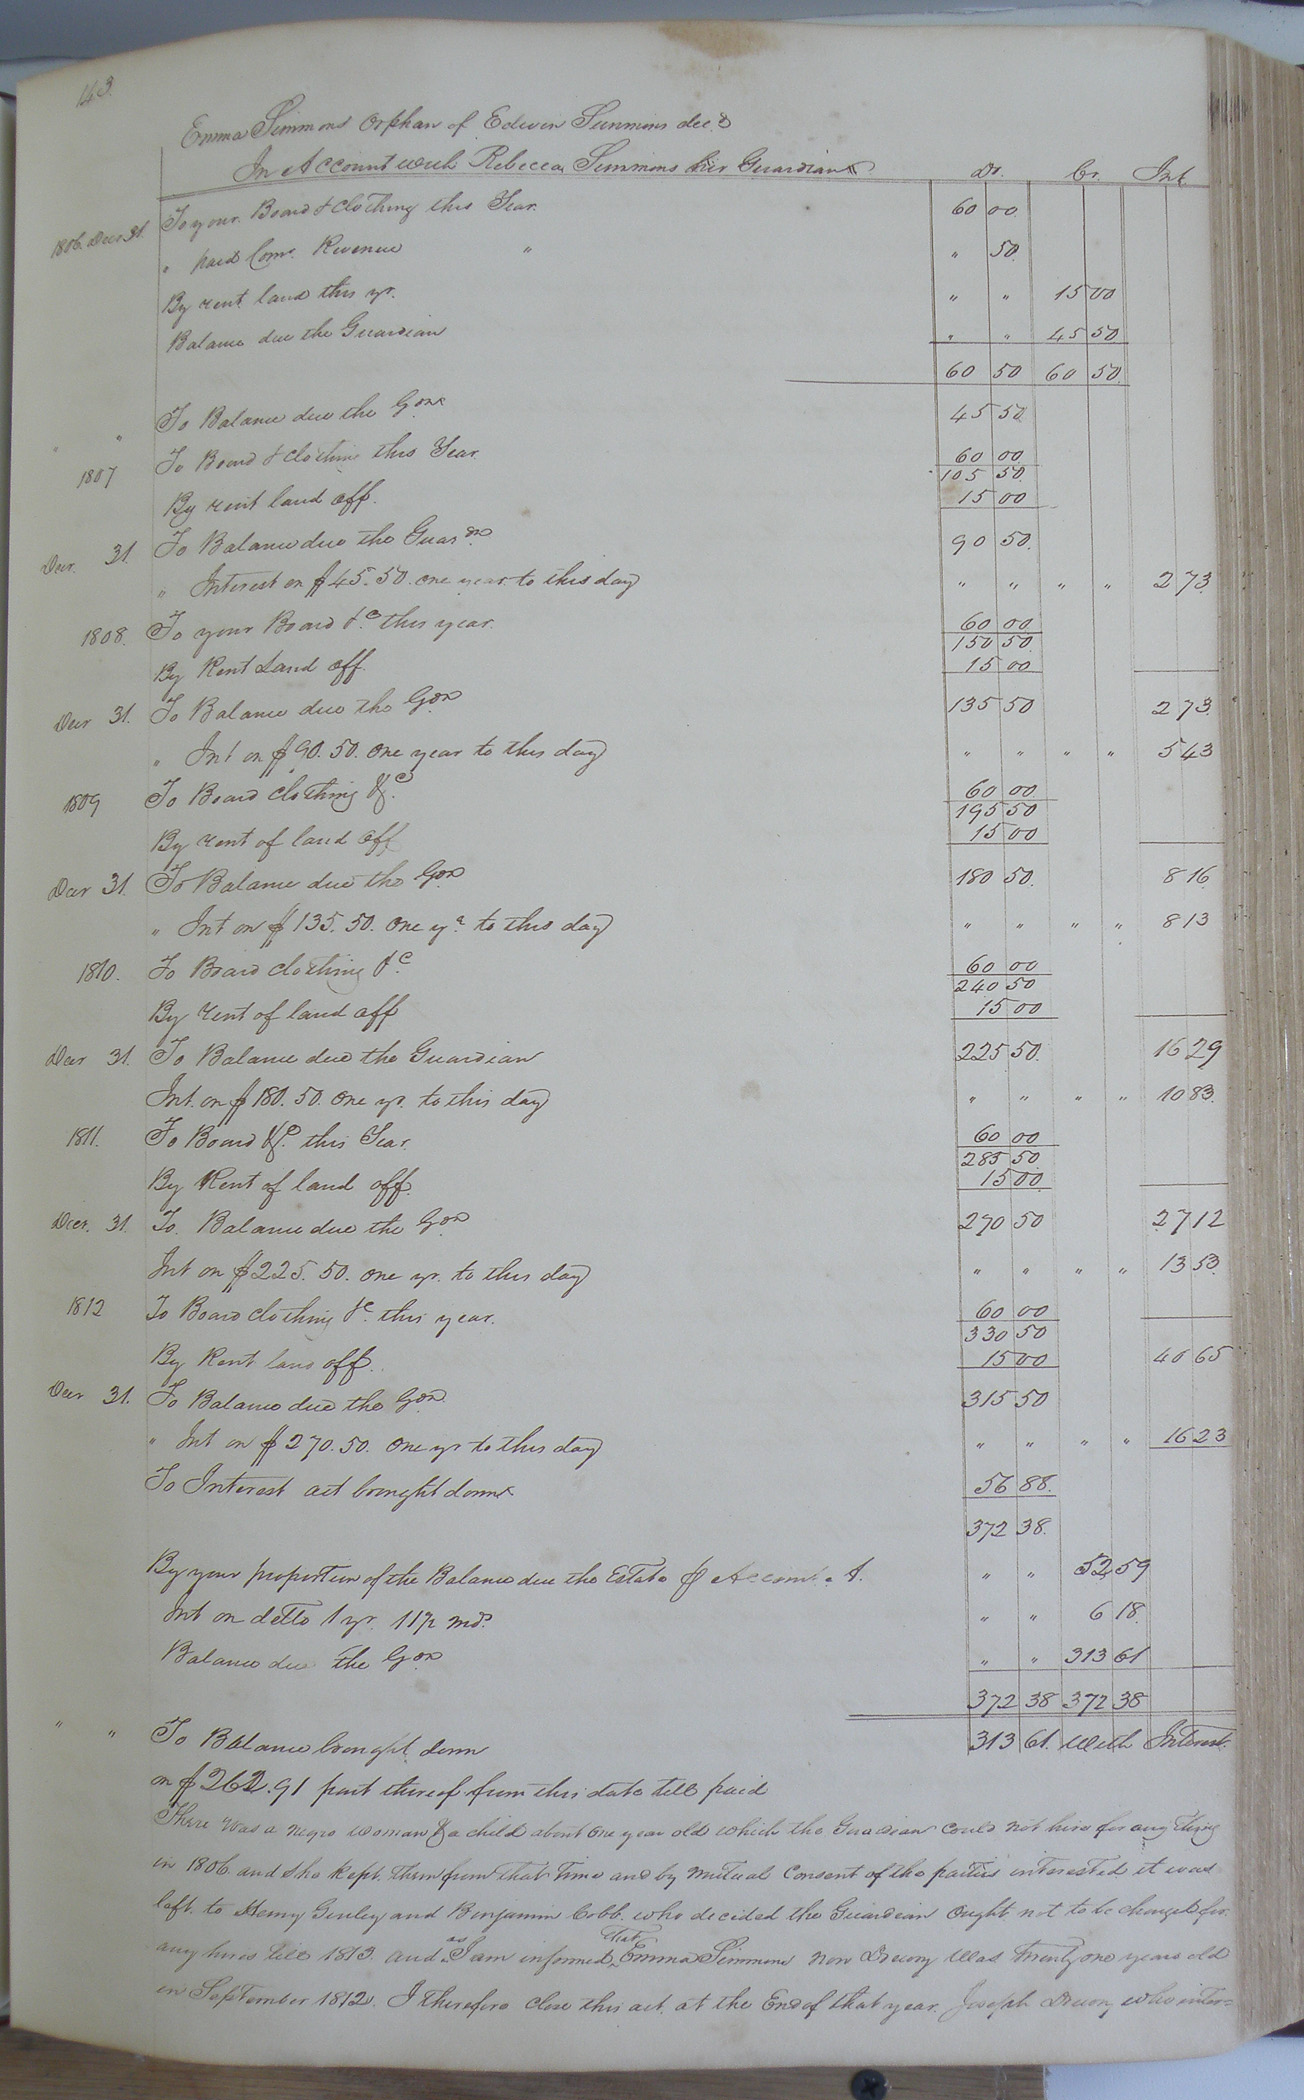 143
Emma Simmons Orphan of Edwin Simmons decd
In Account with Rebecca Simmons her Guardian Dr. Cr. Int
1806. Decr 31. To your Board & Clothing this Year. 60 00
" paid Comr. Revenue " " 50
By rent land this yr. " " 15 00
Balance due the Guardian " " 45 50
60 50 60 50
" " To Balance due the Gdn 45 50
1807 To Board & clothing this Year 60 00
105 50
By rent land off. 15 00
Decr. 31. To Balance due the Guardn 90 50
" Interest on $45.50. one year to this day " " " " 2 73
1808. To your Board &c. this year. 60 00
150 50
By Rent Land off. 15 00
Decr 31. To Balance due the Gdn 135 50 2 73
" Int on $90.50. one year to this day " " " " 5 43
1809 To Board clothing &c. 60 00
195 50
By rent of land off 15 00
Decr 31. To Balance due the Gdn 180 50 8 16
" Int on $135.50. one yr. to this day " " " " 8 13
1810. To Board clothing &c. 60 00
240 50
By rent of land off 15 00
Decr 31. To Balance due the Guardian 225 50. 16 29
Int. on $180.50. one yr. to this day " " " " 10 83.
1811. To Board &c. this Year. 60 00
285 50
By Rent of land off. 15 00
Decr. 31. To Balance due the Gdn 270 50 27 12
Int on $225.50. one yr. to this day " " " " 13 53.
1812 To Board clothing &c. this year. 60 00
330 50
By Rent land off. 15 00 40 65
Decr 31. To Balance due the Gdn 315 50
" Int on $270.50. one yr to this day " " " " 16 23
To Interest act brought down 56 88.
372 38.
By your proportion of the Balance due the Estate Accomt. A. " " 52 59
Int on detto 1 yr. 11½ mos. " " 6 18.
Balance due the Gdn " " 313 61
372 38 372 38
" " To Balance brought down 313 61. with Interest
on $262.91 part thereof from this date till paid
There was a negro woman & a child about one year old which the Guardian could not hire for any thing
in 1806. and she kept them from that time and by mutual Consent of the parties interested it was
left to Henry Gurley and Benjamin Cobb. who decided the Guardian ought not to be charged for
any hires till 1813. and as I am informed that Emma Simmons now Drewry was twenty one years old
in September 1812. I therefore close this act. at the End of that year. Joseph Drewry who inter=